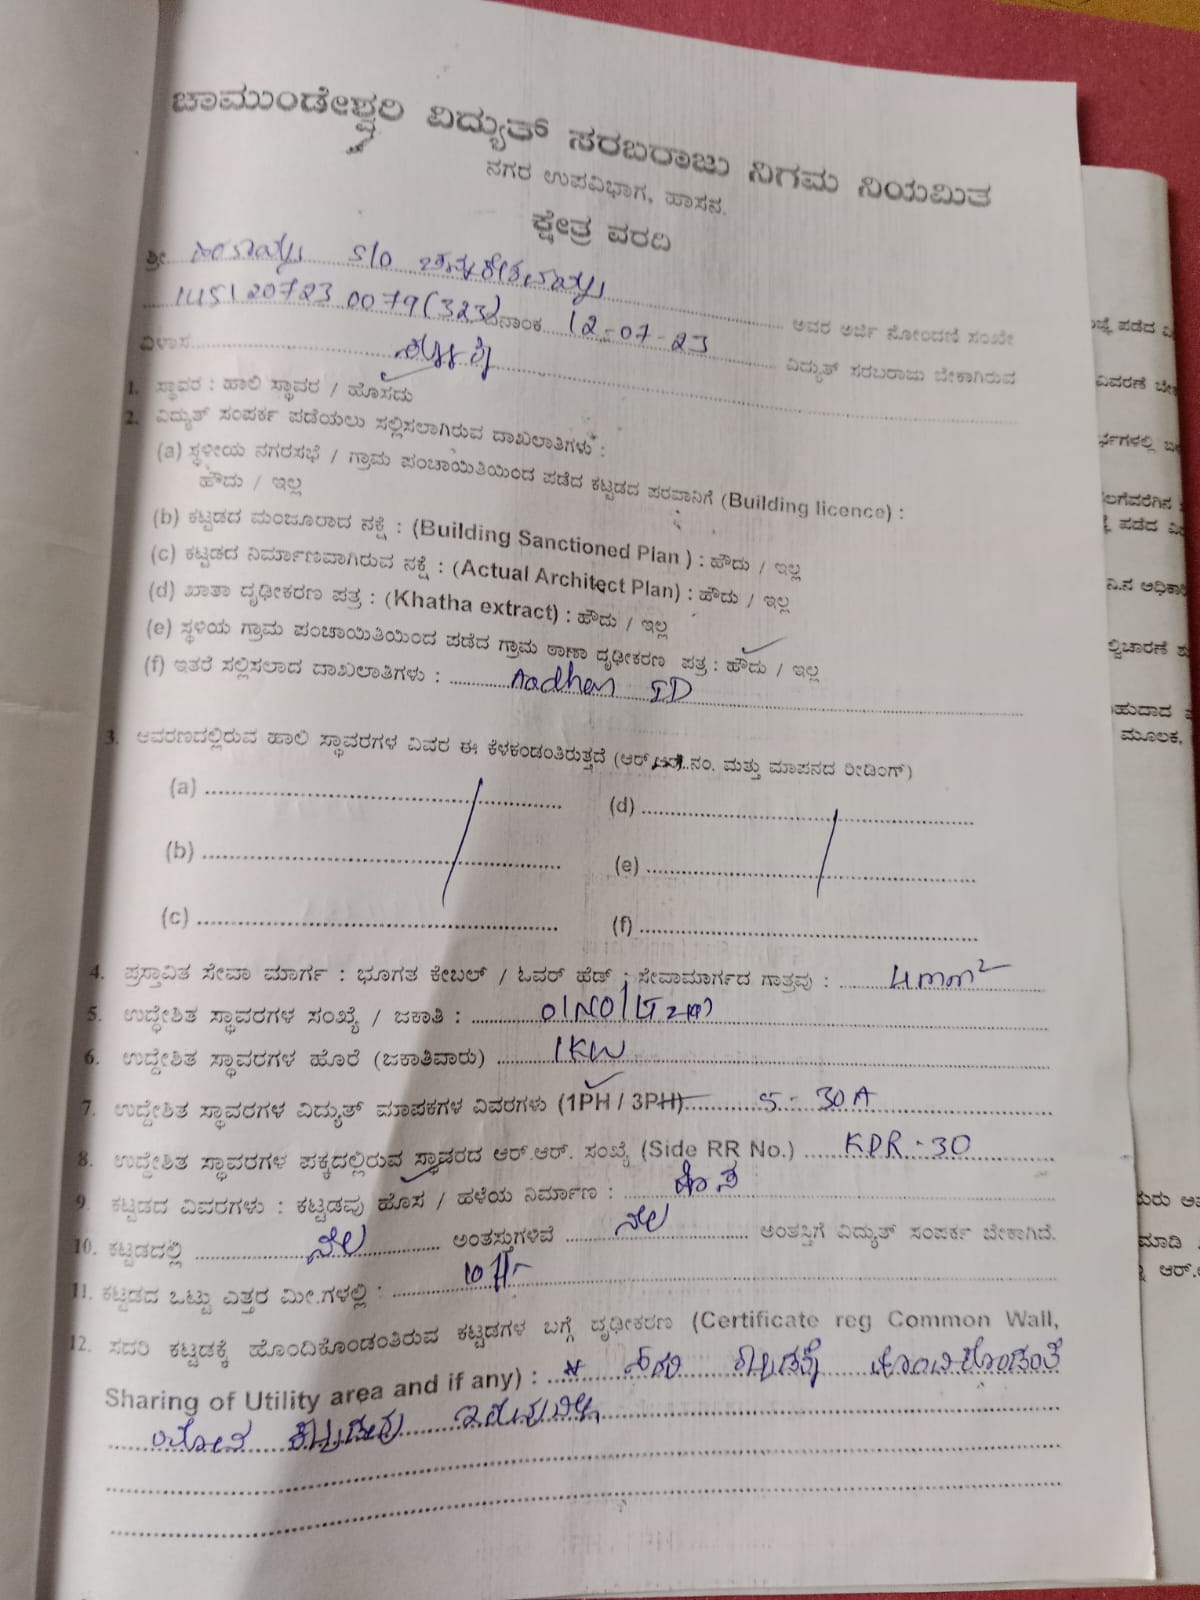 ಚಾಮುಂಡೇಶ್ವರಿ ವಿದ್ಯುತ್ ಸರಬರಾಜು ನಿಗಮ ನಿಯಮಿತ
ನಗರ ಉಪವಿಭಾಗ, ಹಾಸನ.
ಕ್ಷೇತ್ರ ವರದಿ
ಶ್ರೀ S/O ಅವರ ಅರ್ಜಿ ನೋಂದಣಿ ಸಂಖ್ಯೇ
145120723 0079(323) ದಿನಾಂಕ 12-07-23 ವಿದ್ಯುತ್ ಸರಬರಾಜು ಬೇಕಾಗಿರುವ
ವಿಳಾಸ
1. ಸ್ಥಾವರ : ಹಾಲಿ ಸ್ಥಾವರ / ಹೊಸದು
2. ವಿದ್ಯುತ್ ಸಂಪರ್ಕ ಪಡೆಯಲು ಸಲ್ಲಿಸಲಾಗಿರುವ ದಾಖಲಾತಿಗಳು :
(a) ಸ್ಥಳೀಯ ನಗರಸಭೆ / ಗ್ರಾಮ ಪಂಚಾಯಿತಿಯಿಂದ ಪಡೆದ ಕಟ್ಟಡದ ಪರವಾನಿಗೆ (Building licence) :
ಹೌದು / ಇಲ್ಲ
(b) ಕಟ್ಟಡದ ಮಂಜೂರಾದ ನಕ್ಷೆ : (Building Sanctioned Plan ) : ಹೌದು / ಇಲ್ಲ
(c) ಕಟ್ಟಡದ ನಿರ್ಮಾಣವಾಗಿರುವ ನಕ್ಷೆ : (Actual Architect Plan) : ಹೌದು / ಇಲ್ಲ
(d) ಖಾತಾ ದೃಢೀಕರಣ ಪತ್ರ : (Khatha extract) : ಹೌದು / ಇಲ್ಲ
(e) ಸ್ಥಳಿಯ ಗ್ರಾಮ ಪಂಚಾಯಿತಿಯಿಂದ ಪಡೆದ ಗ್ರಾಮ ಠಾಣಾ ದೃಢೀಕರಣ ಪತ್ರ : ಹೌದು / ಇಲ್ಲ
(f) ಇತರೆ ಸಲ್ಲಿಸಲಾದ ದಾಖಲಾತಿಗಳು : Aadhar ID
3. ಆವರಣದಲ್ಲಿರುವ ಹಾಲಿ ಸ್ಥಾವರಗಳ ವಿವರ ಈ ಕೆಳಕಂಡಂತಿರುತ್ತದೆ (ಆರ್.ಆರ್.ನಂ. ಮತ್ತು ಮಾಪನದ ರೀಡಿಂಗ್)
(a) (d)
(b) (e)
(c) (f)
4. ಪ್ರಸ್ತಾವಿತ ಸೇವಾ ಮಾರ್ಗ : ಭೂಗತ ಕೇಬಲ್ / ಓವರ್ ಹೆಡ್ : ಸೇವಾಮಾರ್ಗದ ಗಾತ್ರವು : 4mm²
5. ಉದ್ಧೇಶಿತ ಸ್ಥಾವರಗಳ ಸಂಖ್ಯೆ / ಜಕಾತಿ : 01NO/LT2(a)
6. ಉದ್ದೇಶಿತ ಸ್ಥಾವರಗಳ ಹೊರೆ (ಜಕಾತಿವಾರು) 1KW
7. ಉದ್ದೇಶಿತ ಸ್ಥಾವರಗಳ ವಿದ್ಯುತ್ ಮಾಪಕಗಳ ವಿವರಗಳು (1PH / 3PH) 5-30A
8. ಉದ್ದೇಶಿತ ಸ್ಥಾವರಗಳ ಪಕ್ಕದಲ್ಲಿರುವ ಸ್ಥಾವರದ ಆರ್.ಆರ್. ಸಂಖ್ಯೆ (Side RR No.) KPR-30
9. ಕಟ್ಟಡದ ವಿವರಗಳು : ಕಟ್ಟಡವು ಹೊಸ / ಹಳೆಯ ನಿರ್ಮಾಣ : ಹೊಸ
10. ಕಟ್ಟಡದಲ್ಲಿ ನೆಲ ಅಂತಸ್ತುಗಳಿವೆ ನೆಲ ಅಂತಸ್ತಿಗೆ ವಿದ್ಯುತ್ ಸಂಪರ್ಕ ಬೇಕಾಗಿದೆ.
11. ಕಟ್ಟಡದ ಒಟ್ಟು ಎತ್ತರ ಮೀ.ಗಳಲ್ಲಿ : 10ft
12. ಸದರಿ ಕಟ್ಟಡಕ್ಕೆ ಹೊಂದಿಕೊಂಡಂತಿರುವ ಕಟ್ಟಡಗಳ ಬಗ್ಗೆ ದೃಢೀಕರಣ (Certificate reg Common Wall,
Sharing of Utility area and if any) : ಸದರಿ ಕಟ್ಟಡಕ್ಕೆ ಹೊಂದಿಕೊಂಡಂತೆ
ಯಾವ ಕಟ್ಟಡವು ಇರುವುದಿಲ್ಲ